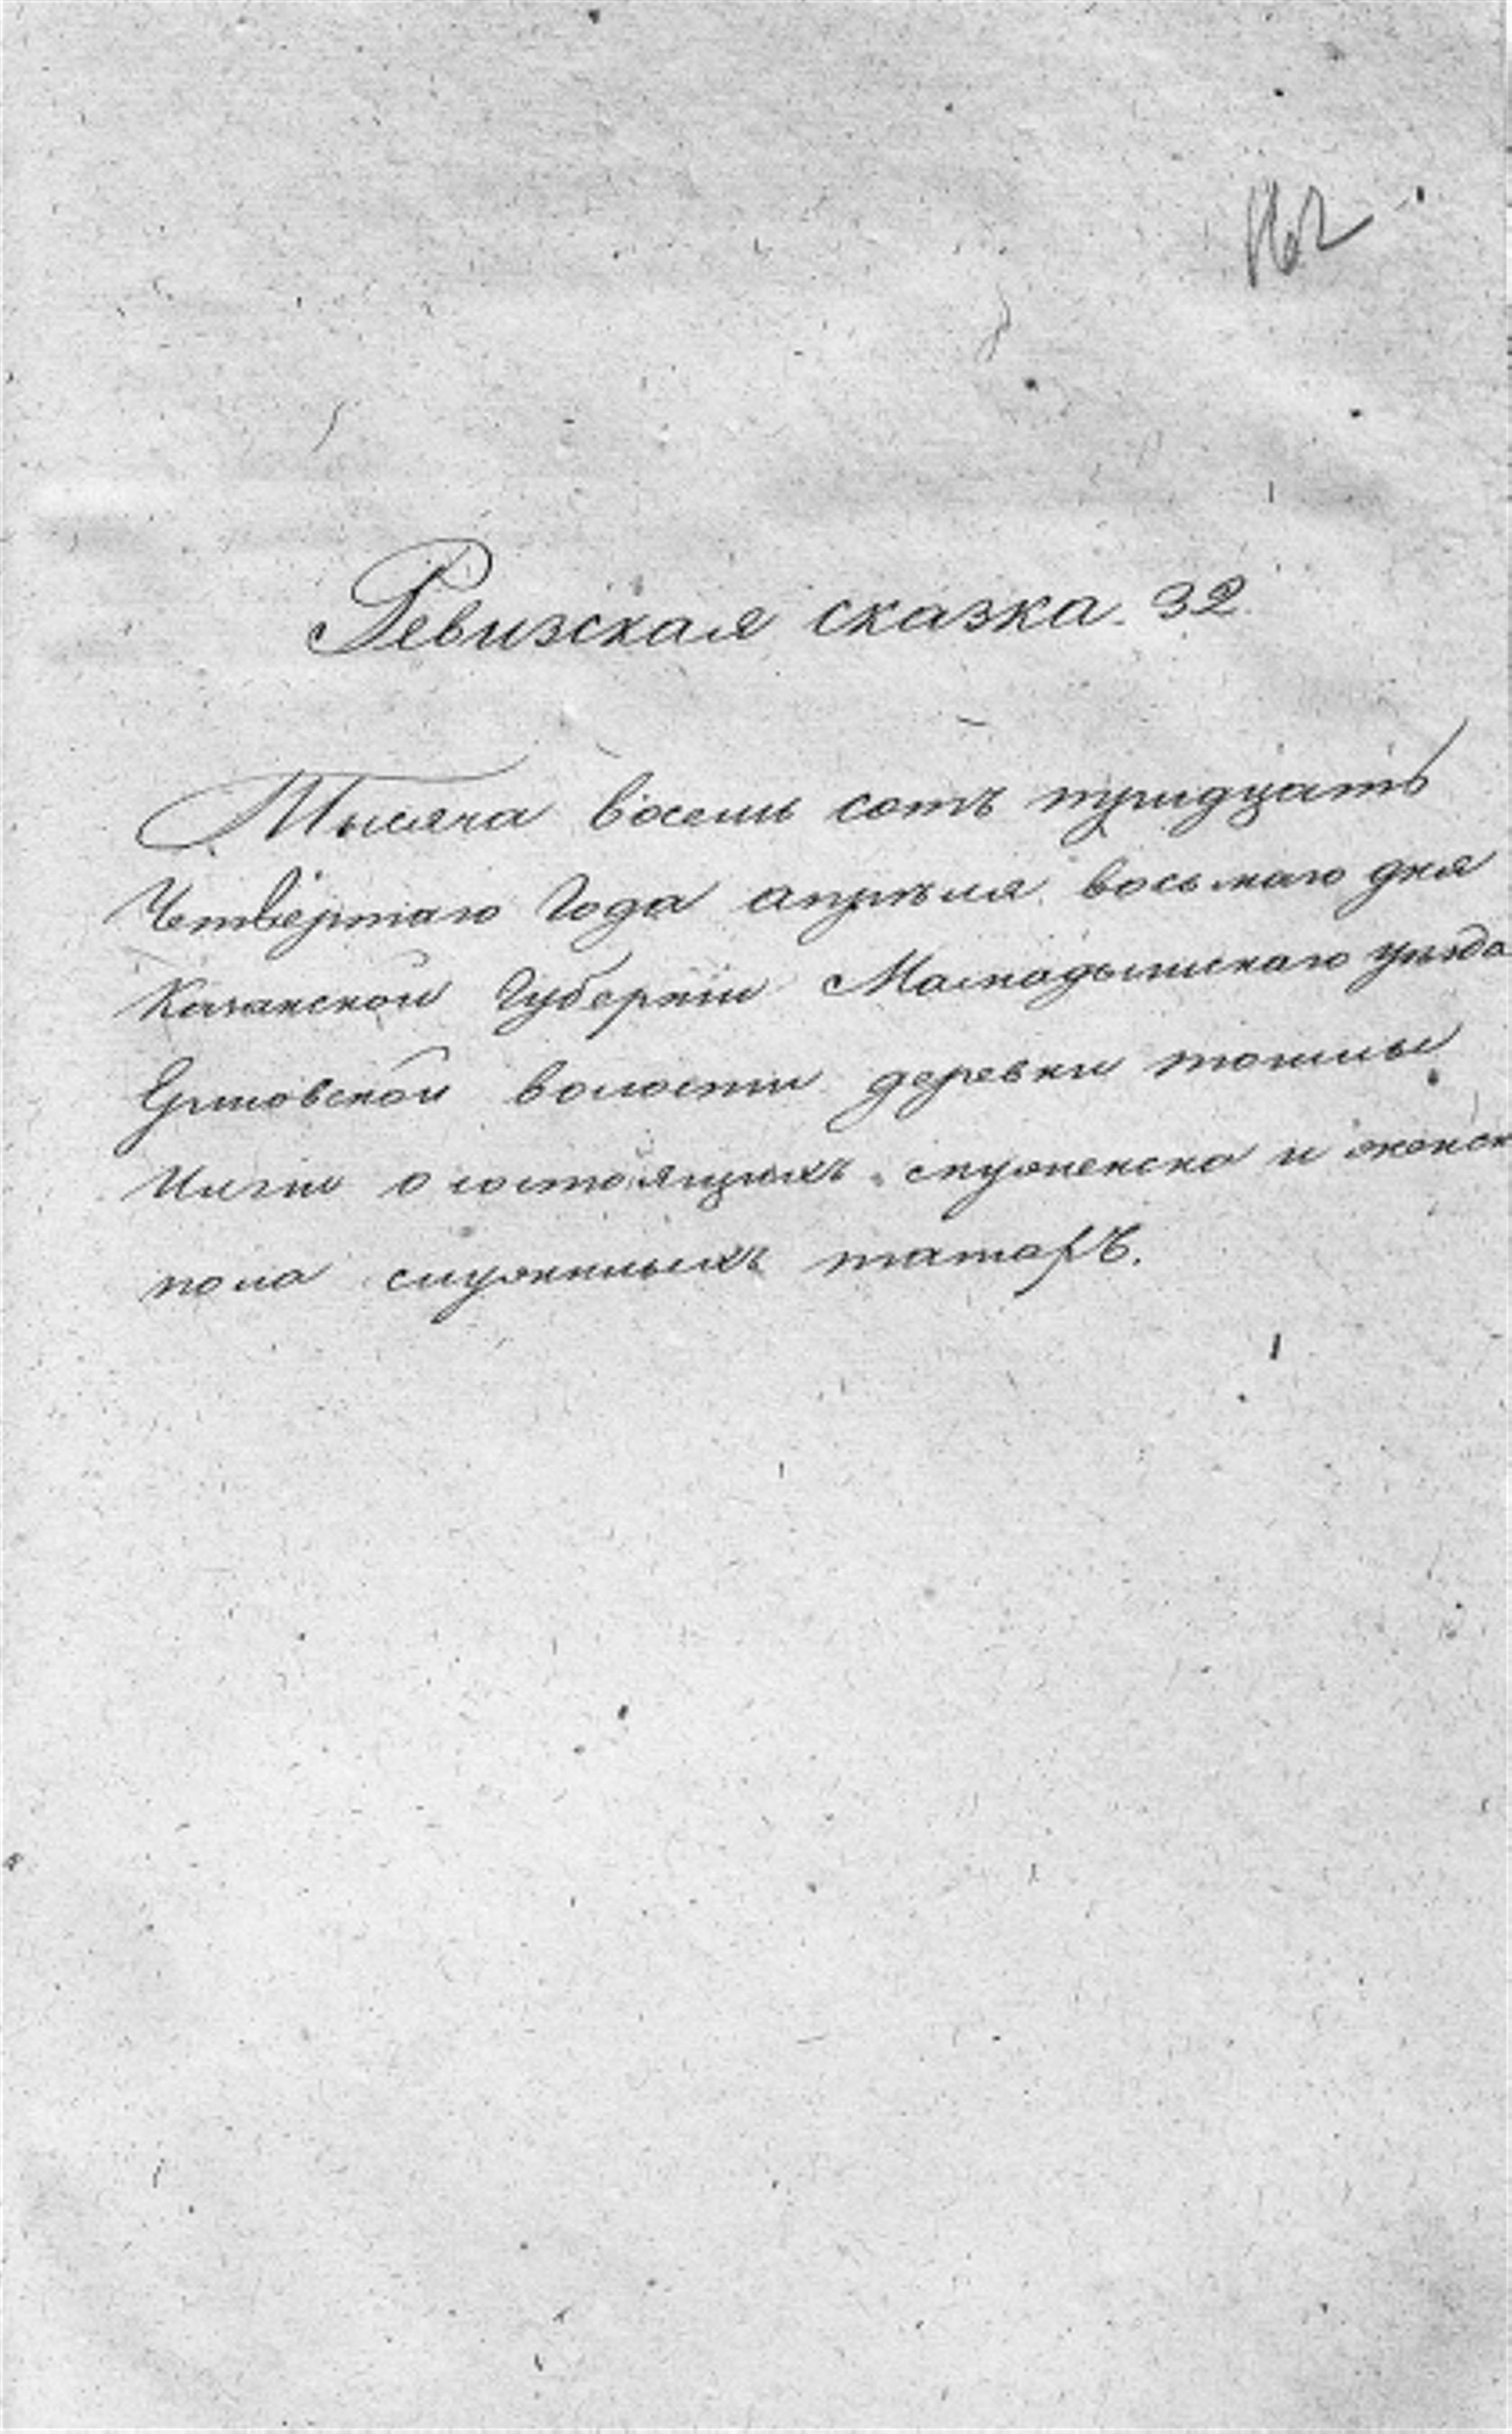 162
Ревизская сказка. 32
Тысяча восемь сотъ тридцать
Четвёртаго Года апрѣля восьмаго дня
Казанской Губернiи Мамадышскаго уѣзда
волости деревни
о состоящихъ мужескаго и женск
пола служилыхъ татаръ.